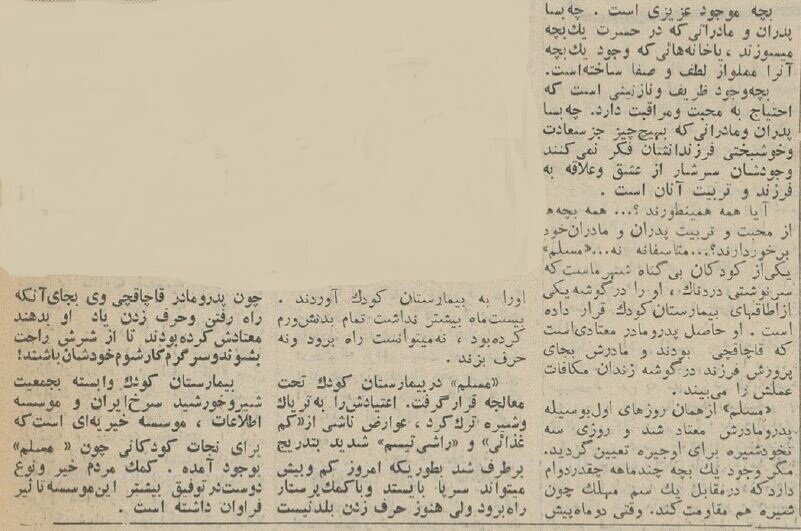 بچه موجود عزیزی است . چه‌بسا
پدران و مادرانی که در حسرت یك‌بچه
میسوزند ، یاخانه‌هائی که وجود یك‌بچه
آنرا مملواز لطف و صفا ساخته‌است.
بچه‌وجود ظریف ونازنینی است که
احتیاج به محبت ومراقبت دارد. چه‌بسا
پدران ومادرانی که بهیچ‌چیز جز سعادت
وخوشبختی فرزندانشان فکر نمی‌کنند
وجودشان سرشار از عشق وعلاقه به
فرزند و تربیت آنان است .
آیا همه همینطورند ؟... همه بچه‌ها
از محبت و تربیت پدران و مادران‌خود
برخوردارند؟...متاسفانه نه...«مسلم»
یکی‌از کودکان بی‌گناه شهر ماست که
سرنوشتی دردناك ، او را درگوشه یکی
ازاطاقهای بیمارستان کودك قرار داده
است . او حاصل پدرومادر معتادی‌است
که قاچاقچی بودند و مادرش بجای
پرورش فرزند درگوشه زندان مکافات
عملش را می‌بیند .
«مسلم» ازهمان روزهای اول‌بوسیله
پدرومادرش معتاد شد و روزی سه
نخودشیره برای اوجیره تعیین‌گردید.
مگر وجود یك بچه چندماهه چقدردوام
داردکه درمقابل یك سم مهلك چون
شیره هم مقاومت‌کند. وقتی دوماه‌پیش
اورا به بیمارستان کودك آوردند .
بیست‌ماه بیشتر نداشت تمام بدنش‌ورم
کرده‌بود ، نه‌میتوانست راه برود ونه
حرف بزند .
«مسلم» دربیمارستان کودك تحت
معالجه قرارگرفت. اعتیادش‌را به‌تریاك
وشیره ترك‌کرد ، عوارض ناشی از«کم
غذائی» و «راشی‌تیسم» شدید بتدریج
برطرف شد بطوریکه امروز کم وبیش
میتواند سرپا بایستد وباکمك‌پرستار
راه‌برود ولی هنوز حرف زدن بلدنیست
چون پدرومادر قاچاقچی وی بجای‌آنکه
راه رفتن وحرف زدن یاد او بدهند
معتادش کرده‌بودند تا از شرش راحت
بشوندوسرگرم‌کارشوم‌خودشان‌باشند!
بیمارستان کودك وابسته بجمعیت
شیروخورشید سرخ‌ایران و موسسه
اطلاعات ، موسسه خیریه‌ای است‌که
برای نجات کودکانی چون « مسلم»
بوجود آمده . کمك مردم خیر ونوع
دوست‌درتوفیق بیشتر این‌موسسه‌تاثیر
فراوان داشته است .